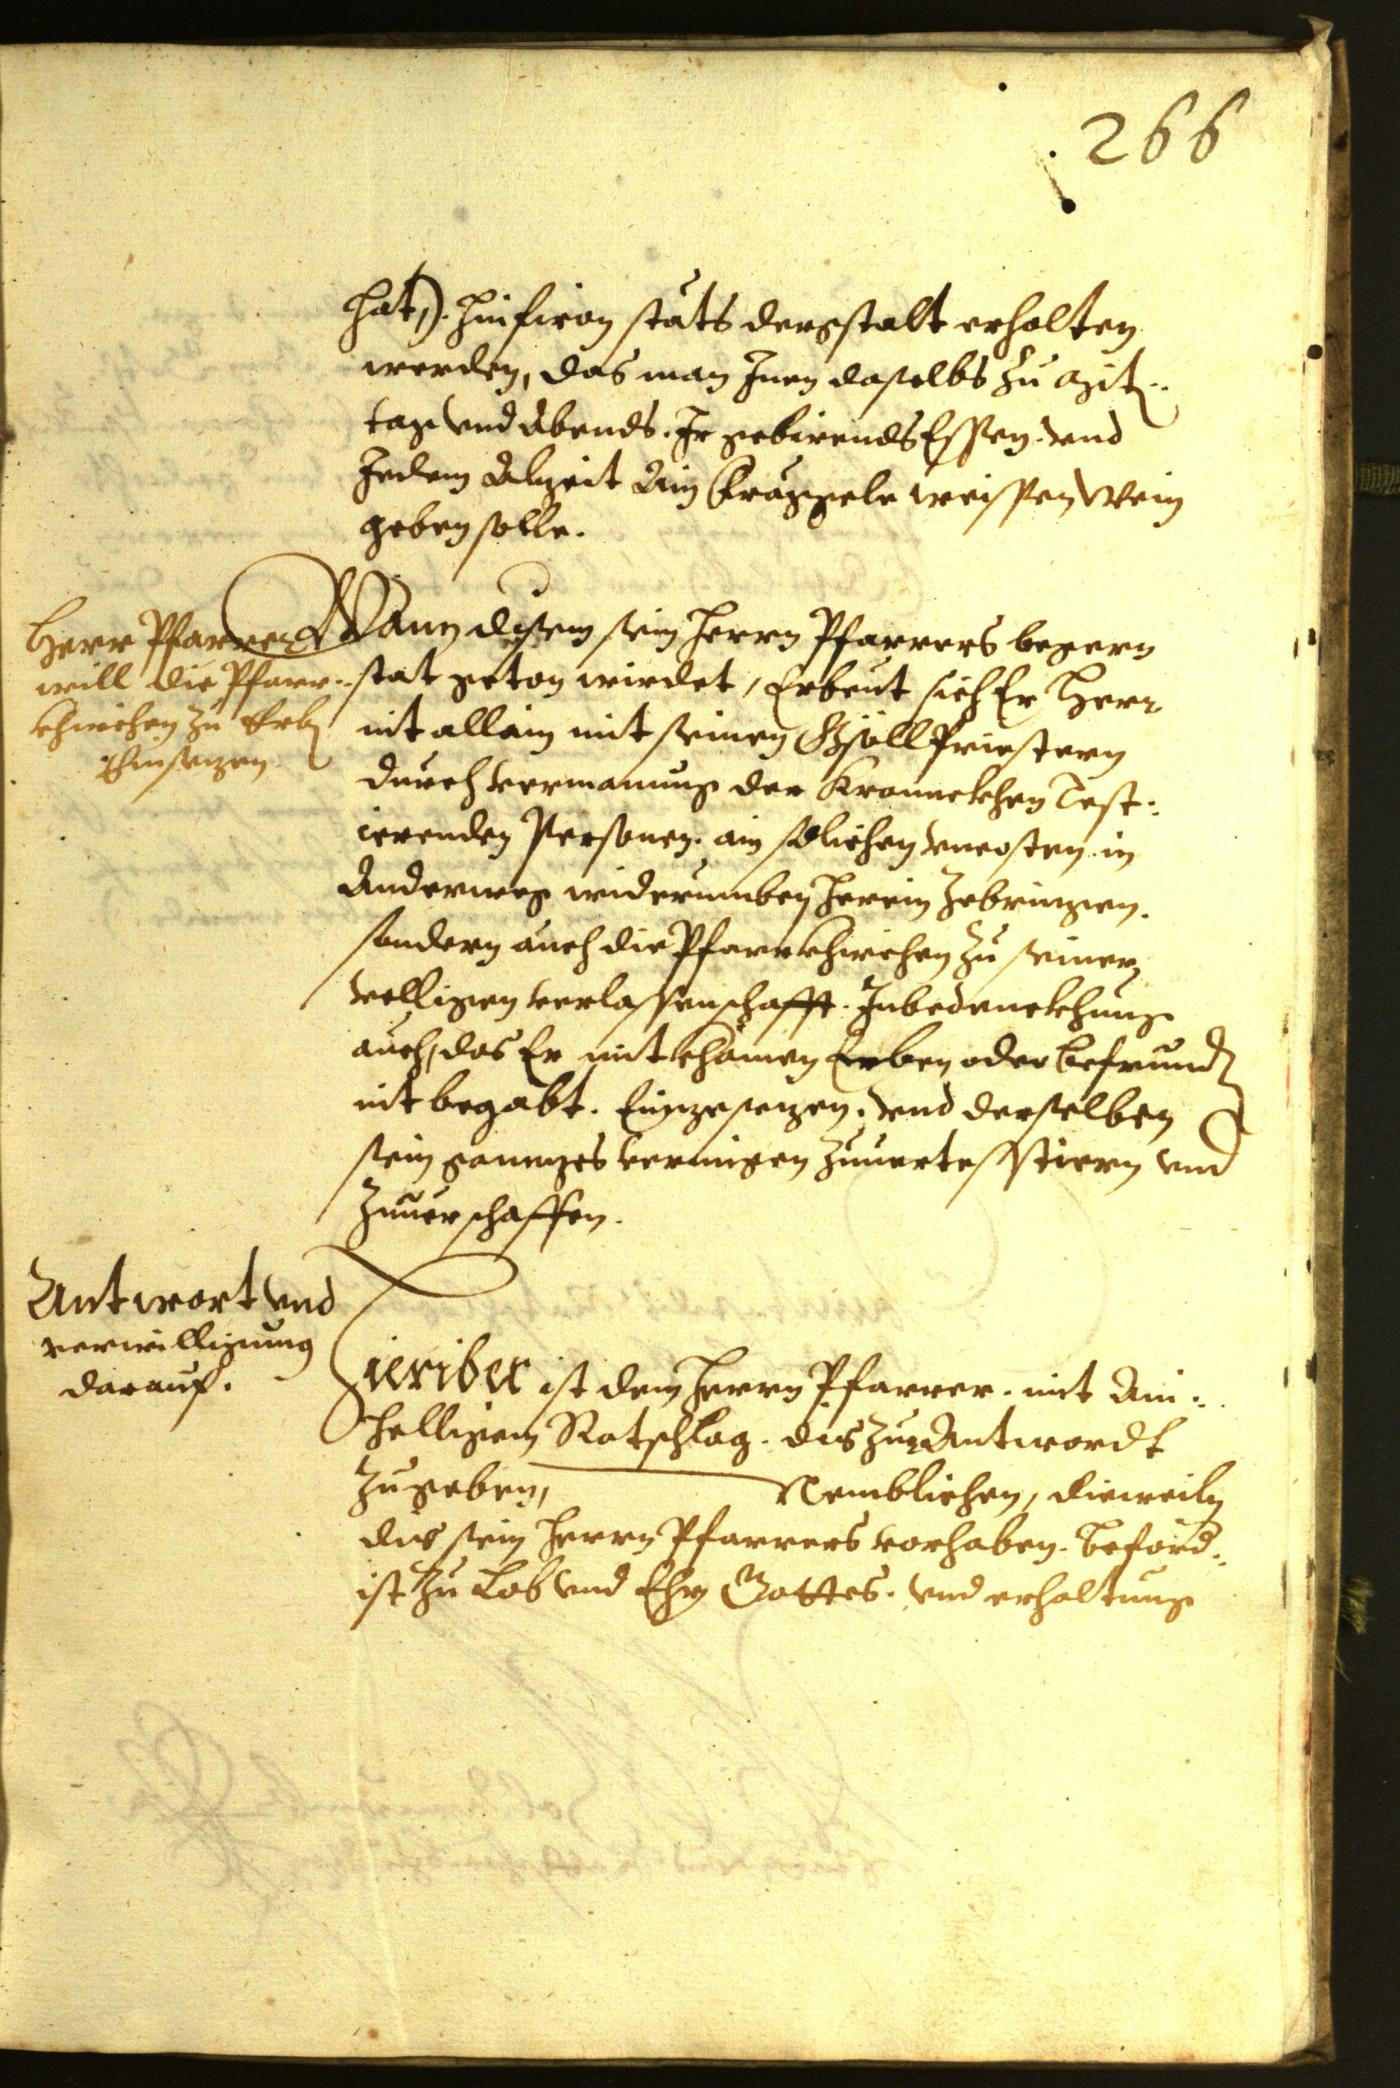 266
hat,). Hinfiron stäts dergstalt erhalten
werden, das man Inen daselbs zu mit-
tag vnd Abends. Ir gebirends Essen. vnd
Jedem Alzeit Ain Fräggele weissen Wein
geben solle.
Herr Pfarrer
will die Pfarr-
khirchen zu Erb
Einsezen
Wann disem sein Herrn Pfarrers begern
stat geton wirdet, Erbeut sich Er Herr
nit allain mit seinen Gsöll Priestern
durch vermanung der Kranckhen Test-
ierenden Personen. ain solichen vncosten in
Anderweg widerumben herein zebringen.
sondern auch die Pfarrkhirchen zu seiner
velligen verlassenschafft. Inbedenckhung
auch, das Er mit khainen Erben oder befreund
nit begabt. Einzesezen. vnd derselben
sein gannzes vermigen zuuertesstiern vnd
zuuerschaffen.
Antwort vnd
verwilligung
darauf.
Hieriber ist dem Herrn Pfarrer. mit Ain-
helligem Ratschlag. dis zur Antwordt
zugeben, Nemblichen, dieweiln
dis sein Herrn Pfarrers vorhaben. beford-
ist zu Lob vnd Ehr Gottes. vnd erhaltung